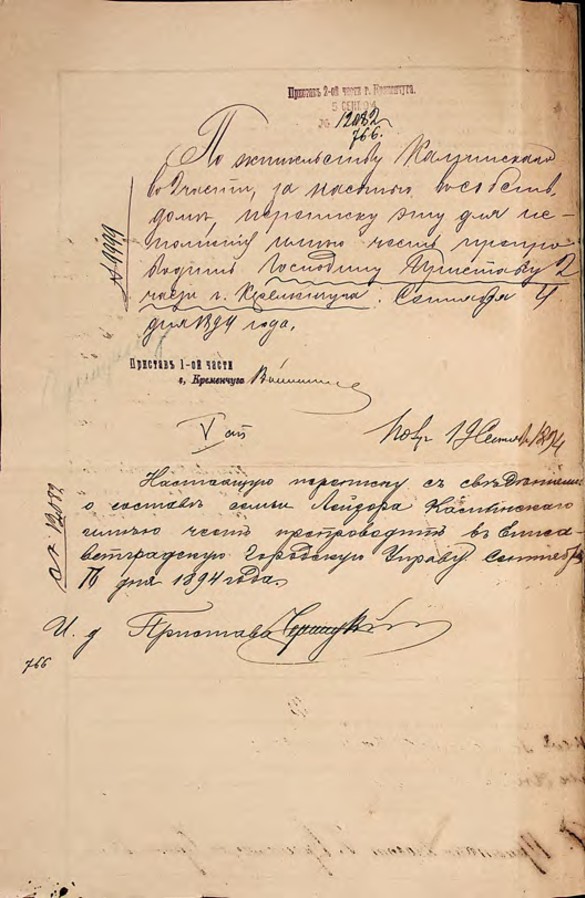 Приставъ 2-ой части г. Кременчуга.
5 СЕН. 94
№ 12082
766.
По жительству Капинскаго
во 2 части, за
домъ, переписку эту для ис-
полненія имѣю честь препро
водить Господину Приставу 2
части г. Кременчуга. Сентября 4
дня 1894 года.
№ 9999
Приставъ 1-ой части
г. Кременчуга
19 Сент. 1894
Настоящую переписку съ свѣдѣніями
о составѣ семьи Лейзора
имѣю честь препроводить въ Елиса
ветградскую Городскую Управу. Сентября
дня 1894 года.
№ 12082
И. д. Пристава
766